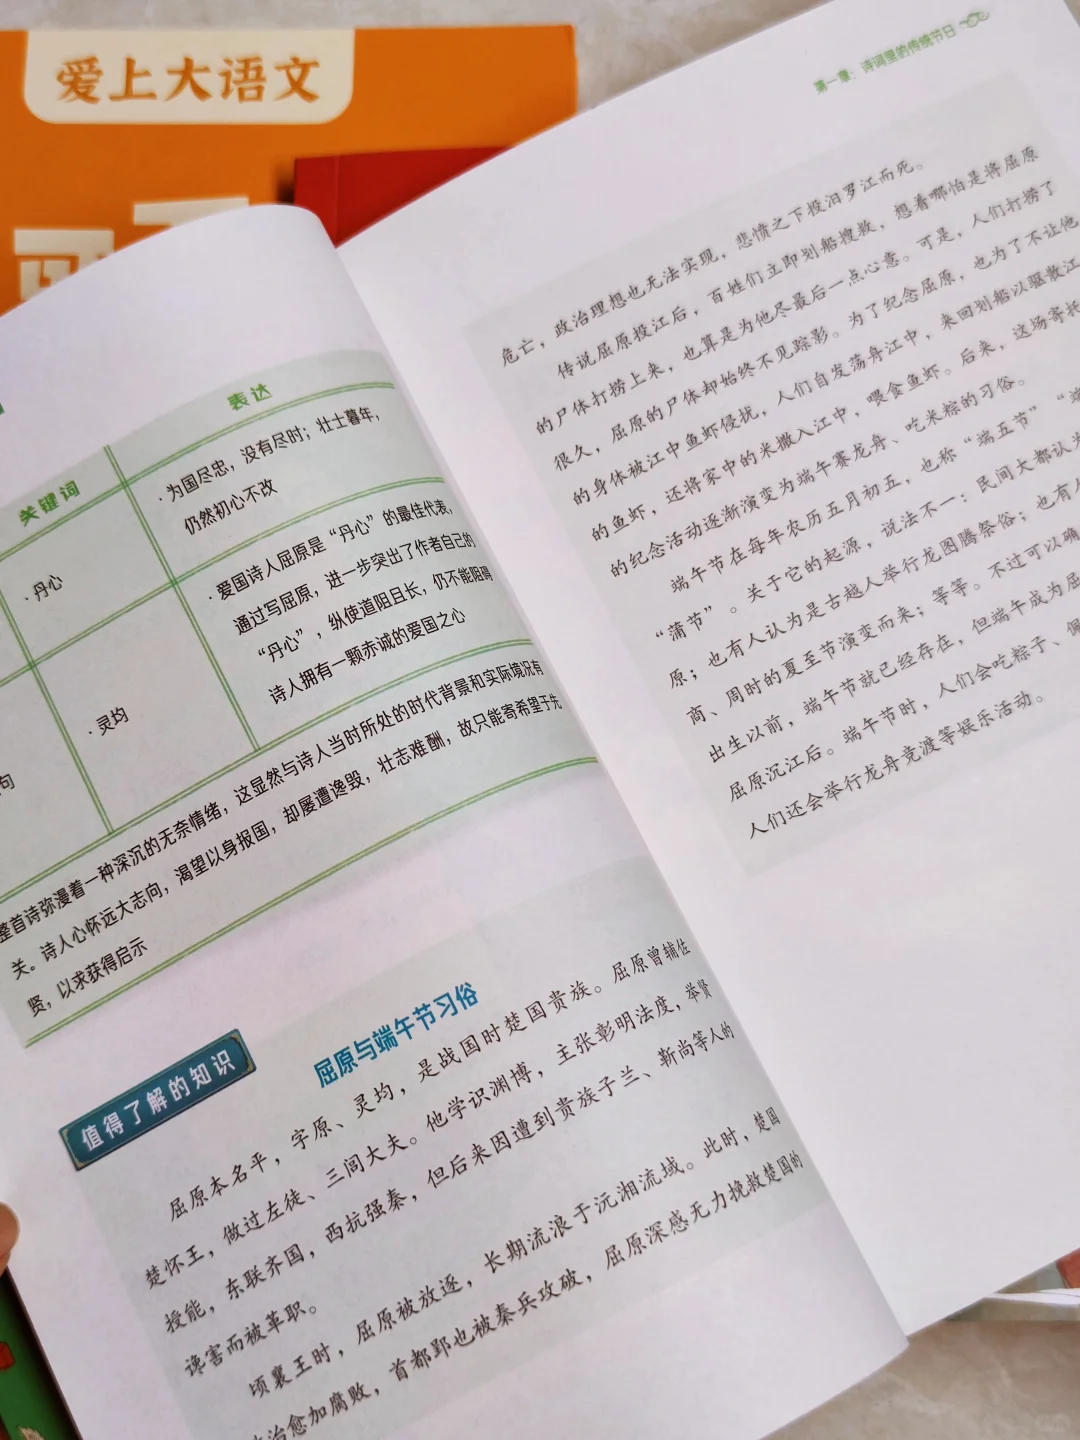 爱上大语文
关键词
表达
·丹心
·为国尽忠，没有尽时；壮士暮年，
仍然初心不改
·灵均
·爱国诗人屈原是“丹心”的最佳代表，
通过写屈原，进一步突出了作者自己的
“丹心”，纵使道阻且长，仍不能阻碍
诗人拥有一颗赤诚的爱国之心
句
整首诗弥漫着一种深沉的无奈情绪，这显然与诗人当时所处的时代背景和实际境况有
关。诗人心怀远大志向，渴望以身报国，却屡遭谗毁，壮志难酬，故只能寄希望于先
贤，以求获得启示
值得了解的知识
屈原与端午节习俗
屈原本名平，字原、灵均，是战国时楚国贵族。屈原曾辅佐
楚怀王，做过左徒、三闾大夫。他学识渊博，主张彰明法度，举贤
授能，东联齐国，西抗强秦，但后来因遭到贵族子兰、靳尚等人的
谗害而被革职。
顷襄王时，屈原被放逐，长期流浪于沅湘流域。此时，楚国
治愈加腐败，首都郢也被秦兵攻破，屈原深感无力挽救楚国的
第一章：诗词里的传统节日
危亡，政治理想也无法实现，悲愤之下投汨罗江而死。
传说屈原投江后，百姓们立即划船搜救，想着哪怕是将屈原
的尸体打捞上来，也算是为他尽最后一点心意。可是，人们打捞了
很久，屈原的尸体却始终不见踪影。为了纪念屈原，也为了不让他
的身体被江中鱼虾侵扰，人们自发荡舟江中，来回划船以驱散江
的鱼虾，还将家中的米撒入江中，喂食鱼虾。后来，这场寄托
的纪念活动逐渐演变为端午赛龙舟、吃米粽的习俗。
端午节在每年农历五月初五，也称“端五节”“端
“蒲节”。关于它的起源，说法不一：民间大都认为
原；也有人认为是古越人举行龙图腾祭俗；也有人
商、周时的夏至节演变而来；等等。不过可以确
出生以前，端午节就已经存在，但端午成为屈
屈原沉江后。端午节时，人们会吃粽子、佩
人们还会举行龙舟竞渡等娱乐活动。